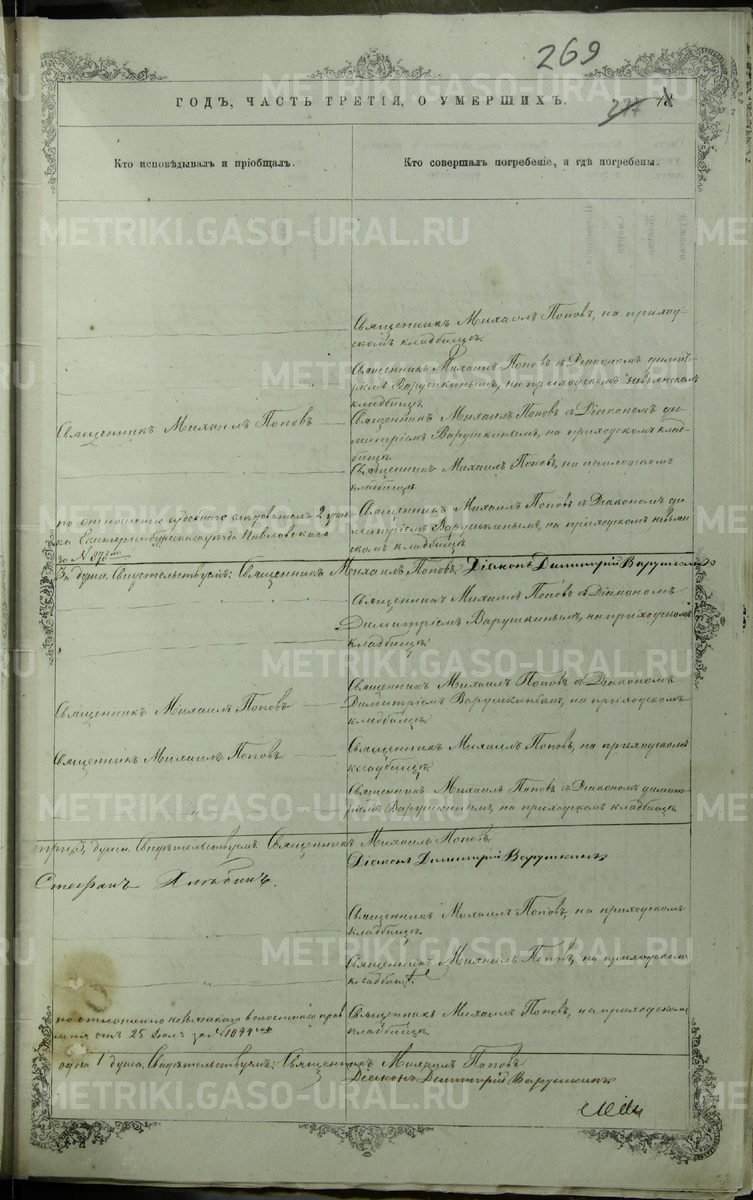 269
277
METRIKI.GASO-URAL.RU
ГОДЪ, ЧАСТЬ ТРЕТІЯ, О УМЕРШИХЪ.
Кто исповѣдывалъ и пріобщалъ.
Кто совершалъ погребеніе, и гдѣ погребены.
Священникъ Михаилъ Поповъ, на приход-
скомъ кладбищѣ.
Священникъ Михаилъ Поповъ съ Діакономъ Димит-
ріемъ Варушкинымъ, на приходскомъ невьянскомъ
кладбищѣ.
Священникъ Михаилъ Поповъ
Священникъ Михаилъ Поповъ съ Діакономъ Ди-
митріемъ Варушкинымъ, на приходскомъ клад-
бищѣ.
Священникъ Михаилъ Поповъ, на приходскомъ
кладбищѣ
по отношенію судебнаго слѣдователя 2 уча
ка Екатеринбургскаго уѣзда Павловскаго
за №
Священникъ Михаилъ Поповъ съ Діакономъ Ди-
митріемъ Варушкинымъ, на приходскомъ невьян
скомъ кладбищѣ
души. Свидѣтельствуемъ: Священникъ Михаилъ Поповъ. Діаконъ Димитрій Варушкинъ
Священникъ Михаилъ Поповъ съ Діакономъ
Димитріемъ Варушкинымъ, на приходскомъ
кладбищѣ
Священникъ Михаилъ Поповъ
Священникъ Михаилъ Поповъ съ Діакономъ
Димитріемъ Варушкинымъ, на приходскомъ
кладбищѣ
Священникъ Михаилъ Поповъ
Священникъ Михаилъ Поповъ, на приходскомъ
кладбищѣ.
Священникъ Михаилъ Поповъ съ Діакономъ Димит-
ріемъ Варушкинымъ, на приходскомъ кладбищѣ
три 3 души. Свидѣтельствуемъ Священникъ Михаилъ Поповъ.
Діаконъ Димитрій Варушкинъ
Стефанъ
Священникъ Михаилъ Поповъ, на приходскомъ
кладбищѣ.
Священникъ Михаилъ Поповъ, на приходскомъ
кладбищѣ
по отношенію невьянскаго волостнаго прав
ленія отъ 25 Іюля за № 1044
Священникъ Михаилъ Поповъ, на приходскомъ
кладбищѣ.
одна 1 душа. Свидѣтельствуемъ: Священникъ Михаилъ Поповъ
Діаконъ Димитрій Варушкинъ